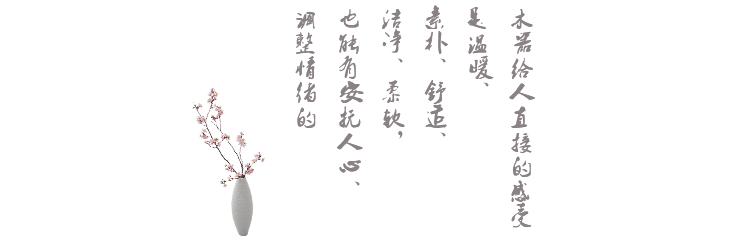 木器给人直接的感受
是温暖、
素朴、舒适、
洁净、柔软，
也能有安抚人心、
调整情绪的